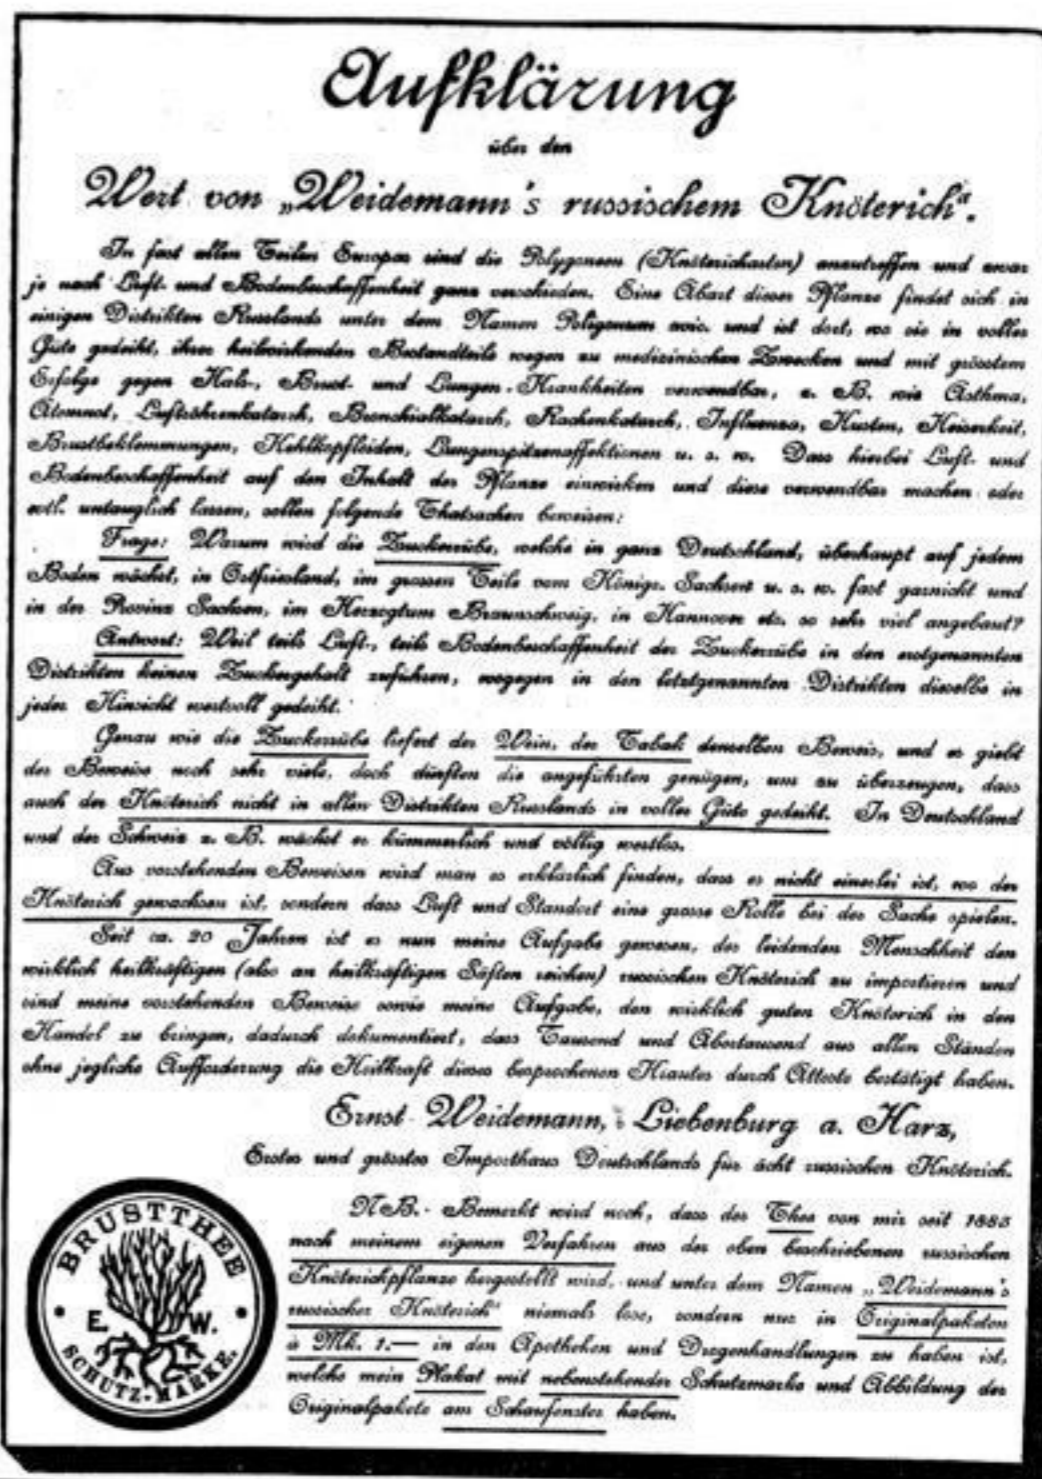 Aufklärung
über den
Wert von „Weidemann's russischem Knöterich“.
In fast allen Teilen Europas sind die Polygoneen (Knötericharten) anzutreffen und zwar
je nach Luft- und Bodenbeschaffenheit ganz verschieden. Eine Abart dieser Pflanze findet sich in
einigen Distrikten Russlands unter dem Namen Poligonum avic. und ist dort, wo sie in voller
Güte gedeiht, ihrer heilwirkenden Bestandteile wegen zu medizinischen Zwecken und mit grösstem
Erfolge gegen Hals-, Brust- und Lungen-Krankheiten verwendbar, z. B. wie Asthma,
Atemnot, Luftröhrenkatarrh, Bronchialkatarrh, Rachenkatarrh, Influenza, Husten, Heiserkeit,
Brustbeklemmungen, Kehlkopfleiden, Lungenspitzenaffektionen u. s. w. Dass hierbei Luft- und
Bodenbeschaffenheit auf den Inhalt der Pflanze einwirken und diese verwendbar machen oder
evtl. untauglich lassen, sollen folgende Thatsachen beweisen:
Frage: Warum wird die Zuckerrübe, welche in ganz Deutschland, überhaupt auf jedem
Boden wächst, in Ostfriesland, im grossen Teile vom Königr. Sachsen u. s. w. fast garnicht und
in der Provinz Sachsen, im Herzogtum Braunschweig, in Hannover etc. so sehr viel angebaut?
Antwort: Weil teils Luft-, teils Bodenbeschaffenheit der Zuckerrübe in den erstgenannten
Distrikten keinen Zuckergehalt zuführen, wogegen in den letztgenannten Distrikten dieselbe in
jeder Hinsicht wertvoll gedeiht.
Genau wie die Zuckerrübe liefert der Wein, der Tabak denselben Beweis, und es giebt
der Beweise noch sehr viele, doch dürften die angeführten genügen, um zu überzeugen, dass
auch der Knöterich nicht in allen Distrikten Russlands in voller Güte gedeiht. In Deutschland
und der Schweiz z. B. wächst er kümmerlich und völlig wertlos.
Aus vorstehenden Beweisen wird man es erklärlich finden, dass es nicht einerlei ist, wo der
Knöterich gewachsen ist, sondern dass Luft und Standort eine grosse Rolle bei der Sache spielen.
Seit ca. 20 Jahren ist es nun meine Aufgabe gewesen, der leidenden Menschheit den
wirklich heilkräftigen (also an heilkräftigen Säften reichen) russischen Knöterich zu importieren und
sind meine vorstehenden Beweise sowie meine Aufgabe, den wirklich guten Knöterich in den
Handel zu bringen, dadurch dokumentiert, dass Tausend und Abertausend aus allen Ständen
ohne jegliche Aufforderung die Heilkraft dieses besprochenen Krautes durch Atteste bestätigt haben.
Ernst Weidemann, Liebenburg a. Harz,
Erstes und grösstes Importhaus Deutschlands für ächt russischen Knöterich.
BRUSTTHEE
E. W.
SCHUTZ-MARKE.
NB. Bemerkt wird noch, dass der Thee von mir seit 1883
nach meinem eigenen Verfahren aus der oben beschriebenen russischen
Knöterichpflanze hergestellt wird, und unter dem Namen „Weidemann's
russischer Knöterich“ niemals lose, sondern nur in Originalpaketen
à Mk. 1.— in den Apotheken und Drogenhandlungen zu haben ist,
welche mein Plakat mit nebenstehender Schutzmarke und Abbildung der
Originalpakete am Schaufenster haben.